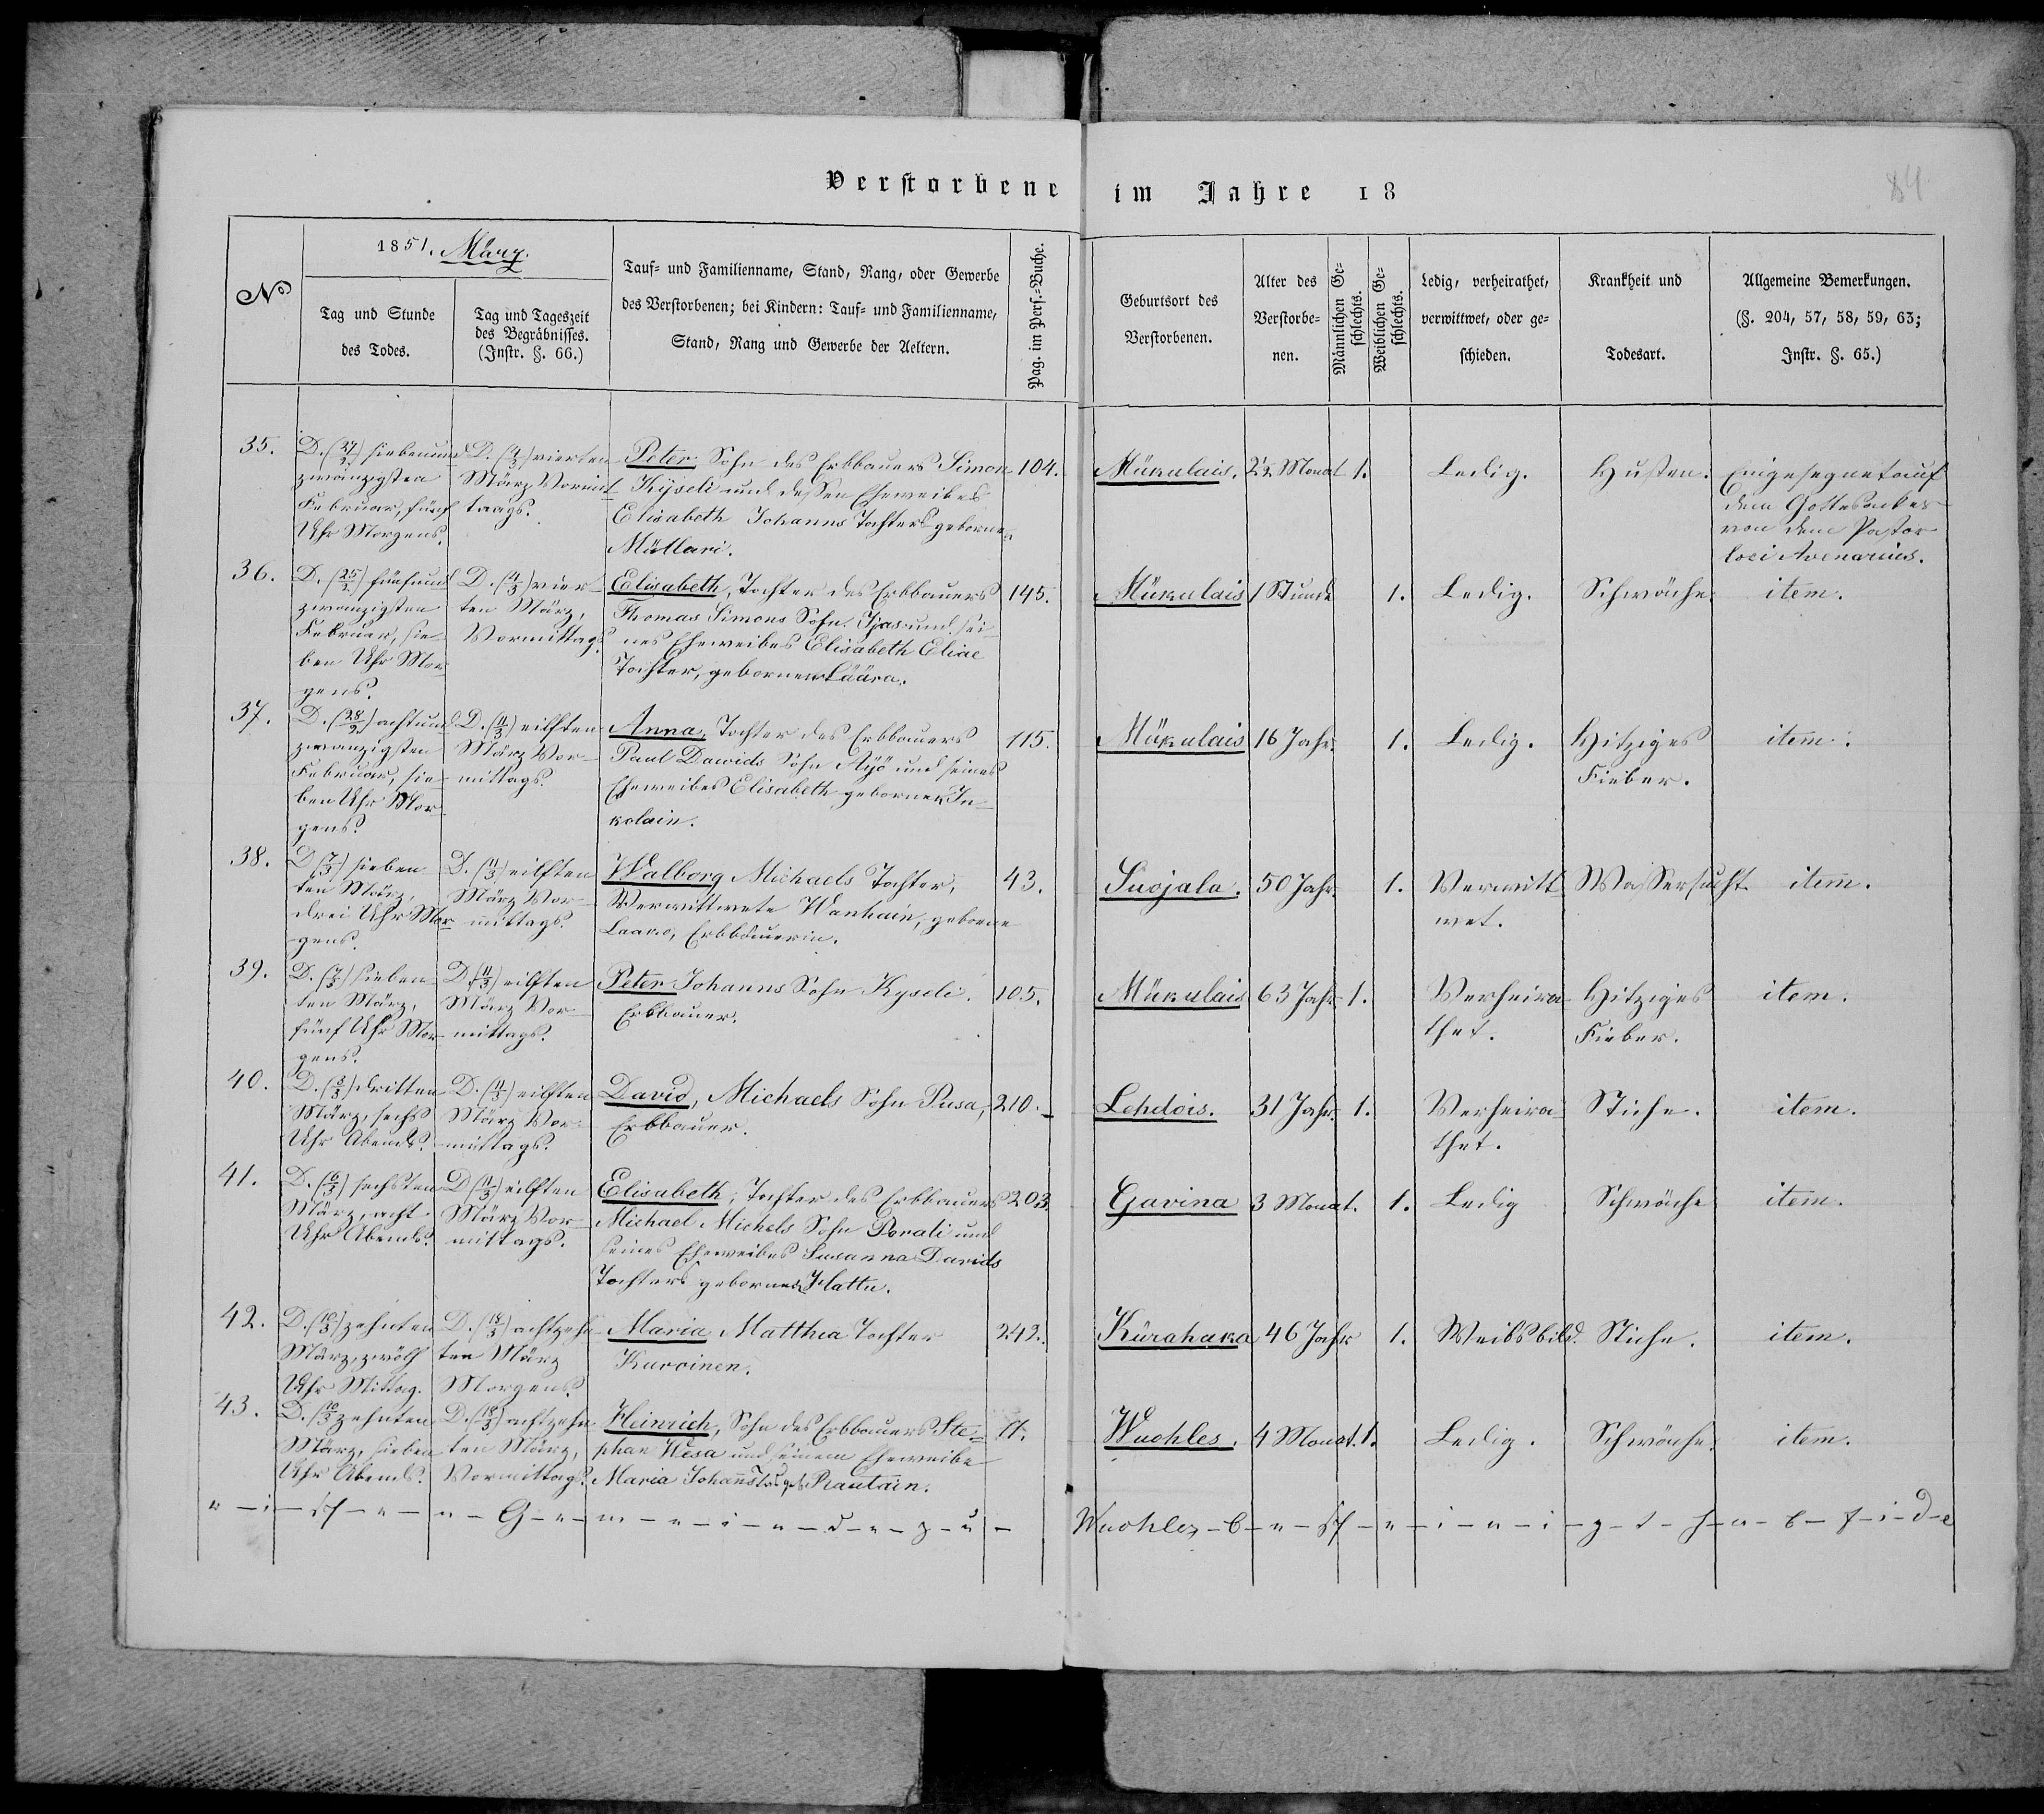 Verstorbene im Jahre 18
84
No
1851. März.
Tag und Stunde
des Todes.
Tag und Tageszeit
des Begräbnisses.
(Instr. §. 66.)
Tauf- und Familienname, Stand, Rang, oder Gewerbe
des Verstorbenen; bei Kindern: Tauf- und Familienname,
Stand, Rang und Gewerbe der Aeltern.
Pag. im Pers.-Buche.
Geburtsort des
Verstorbenen.
Alter des
Verstorbe-
nen.
Männlichen Ge-
schlechts.
Weiblichen Ge-
schlechts.
Ledig, verheirathet,
verwittwet, oder ge-
schieden.
Krankheit und
Todesart.
Allgemeine Bemerkungen.
(§. 204, 57, 58, 59, 63;
Instr. §. 65.)
35.
D. (27/2) siebenund
zwanzigsten
Februar, fünf
Uhr Morgens.
D. (4/3) vierten
März Vormit
taags.
Peter, Sohn des Erbbauers Simon
Kÿseli und dessen Eheweibes
Elisabeth Johanns Tochters geborne
Müllari.
104.
Mükulais.
2½ Monat
1.
Ledig.
Husten.
Eingesegnet auf
dem Gottesacker
von dem Pastor
loci Avenarius.
36.
D. (25/2) fünfund
zwanzigsten
Februar, sie-
ben Uhr Mor
gens.
D. (4/3) vier-
ten März,
Vormittags.
Elisabeth, Tochter des Erbbauers
Thomas Simons Sohn Ijas und sei-
nes Eheweibes Elisabeth Eliae
Tochter, gebornen Läära.
145.
Mükulais
1 Stunde
1.
Ledig.
Schwäche.
item.
37.
D. (28/2) achtund
zwanzigsten
Februar, sie-
ben Uhr Mor
gens.
D. (11/3) eilften
März Vor-
mittags.
Anna, Tochter des Erbbauers
Paul Dawids Sohn Äÿö und seines
Eheweibes Elisabeth gebornen In-
kolain.
115.
Mükulais
16 Jahr.
1.
Ledig.
Hitziges
Fieber.
item.
38.
D (7/3) sieben
ten März,
drei Uhr Mor
gens.
D. (11/3) eilften
März Vor-
mittags.
Walborg Michaels Tochter,
Verwittwete Wanhain, geborne
Laaro, Erbbäuerin.
43.
Suojala.
50 Jahr.
1.
Verwitt
wet.
Wassersucht
item.
39.
D. (7/3) sieben
ten März,
fünf Uhr Mor-
gens.
D (11/3) eilften
März Vor-
mittags.
Peter Johanns Sohn Kyseli.
Erbbauer.
105.
Mükulais
63 Jahr
1.
Verheira-
thet.
Hitziges
Fieber.
item.
40.
D. (3/3) dritten
März, sechs
Uhr Abends.
D. (11/3) eilften
März Vor-
mittags.
David, Michaels Sohn Pusa,
Erbbauer.
210.
Lehdois.
31 Jahr.
1.
Verheira
thet.
Stiche.
item.
41.
D. (6/3) sechsten
März, acht
Uhr Abends.
D (11/3) eilften
März Vor-
mittags.
Elisabeth, Tochter des Erbbauers
Michael Michels Sohn Porali und
seines Eheweibes Susanna Davids
Tochters gebornen Hattu.
203.
Gavina
3 Monat.
1.
Ledig
Schwäche
item.
42.
D. (10/3) zehnten
März, zwölf
Uhr Mittag.
D. (18/3) achtzehn
ten März
Morgens.
Maria Matthia Tochter
Kuroinen.
242.
Kürahaka
46 Jahr
1.
Weibsbild.
Stiche.
item.
43.
D. (10/3) zehnten
März, sieben
Uhr Abends.
D. (18/3) achtzehn
ten März,
Vormittags.
Heinrich, Sohn des Erbbauers Ste-
phan Wesa und seinem Eheweibe
Maria Johanns geb. Rautain.
Wuohles.
4 Monat.
1.
Ledig.
Schwäche.
item.
Wuohles-b-e-sch-e-i-n-i-g-t-